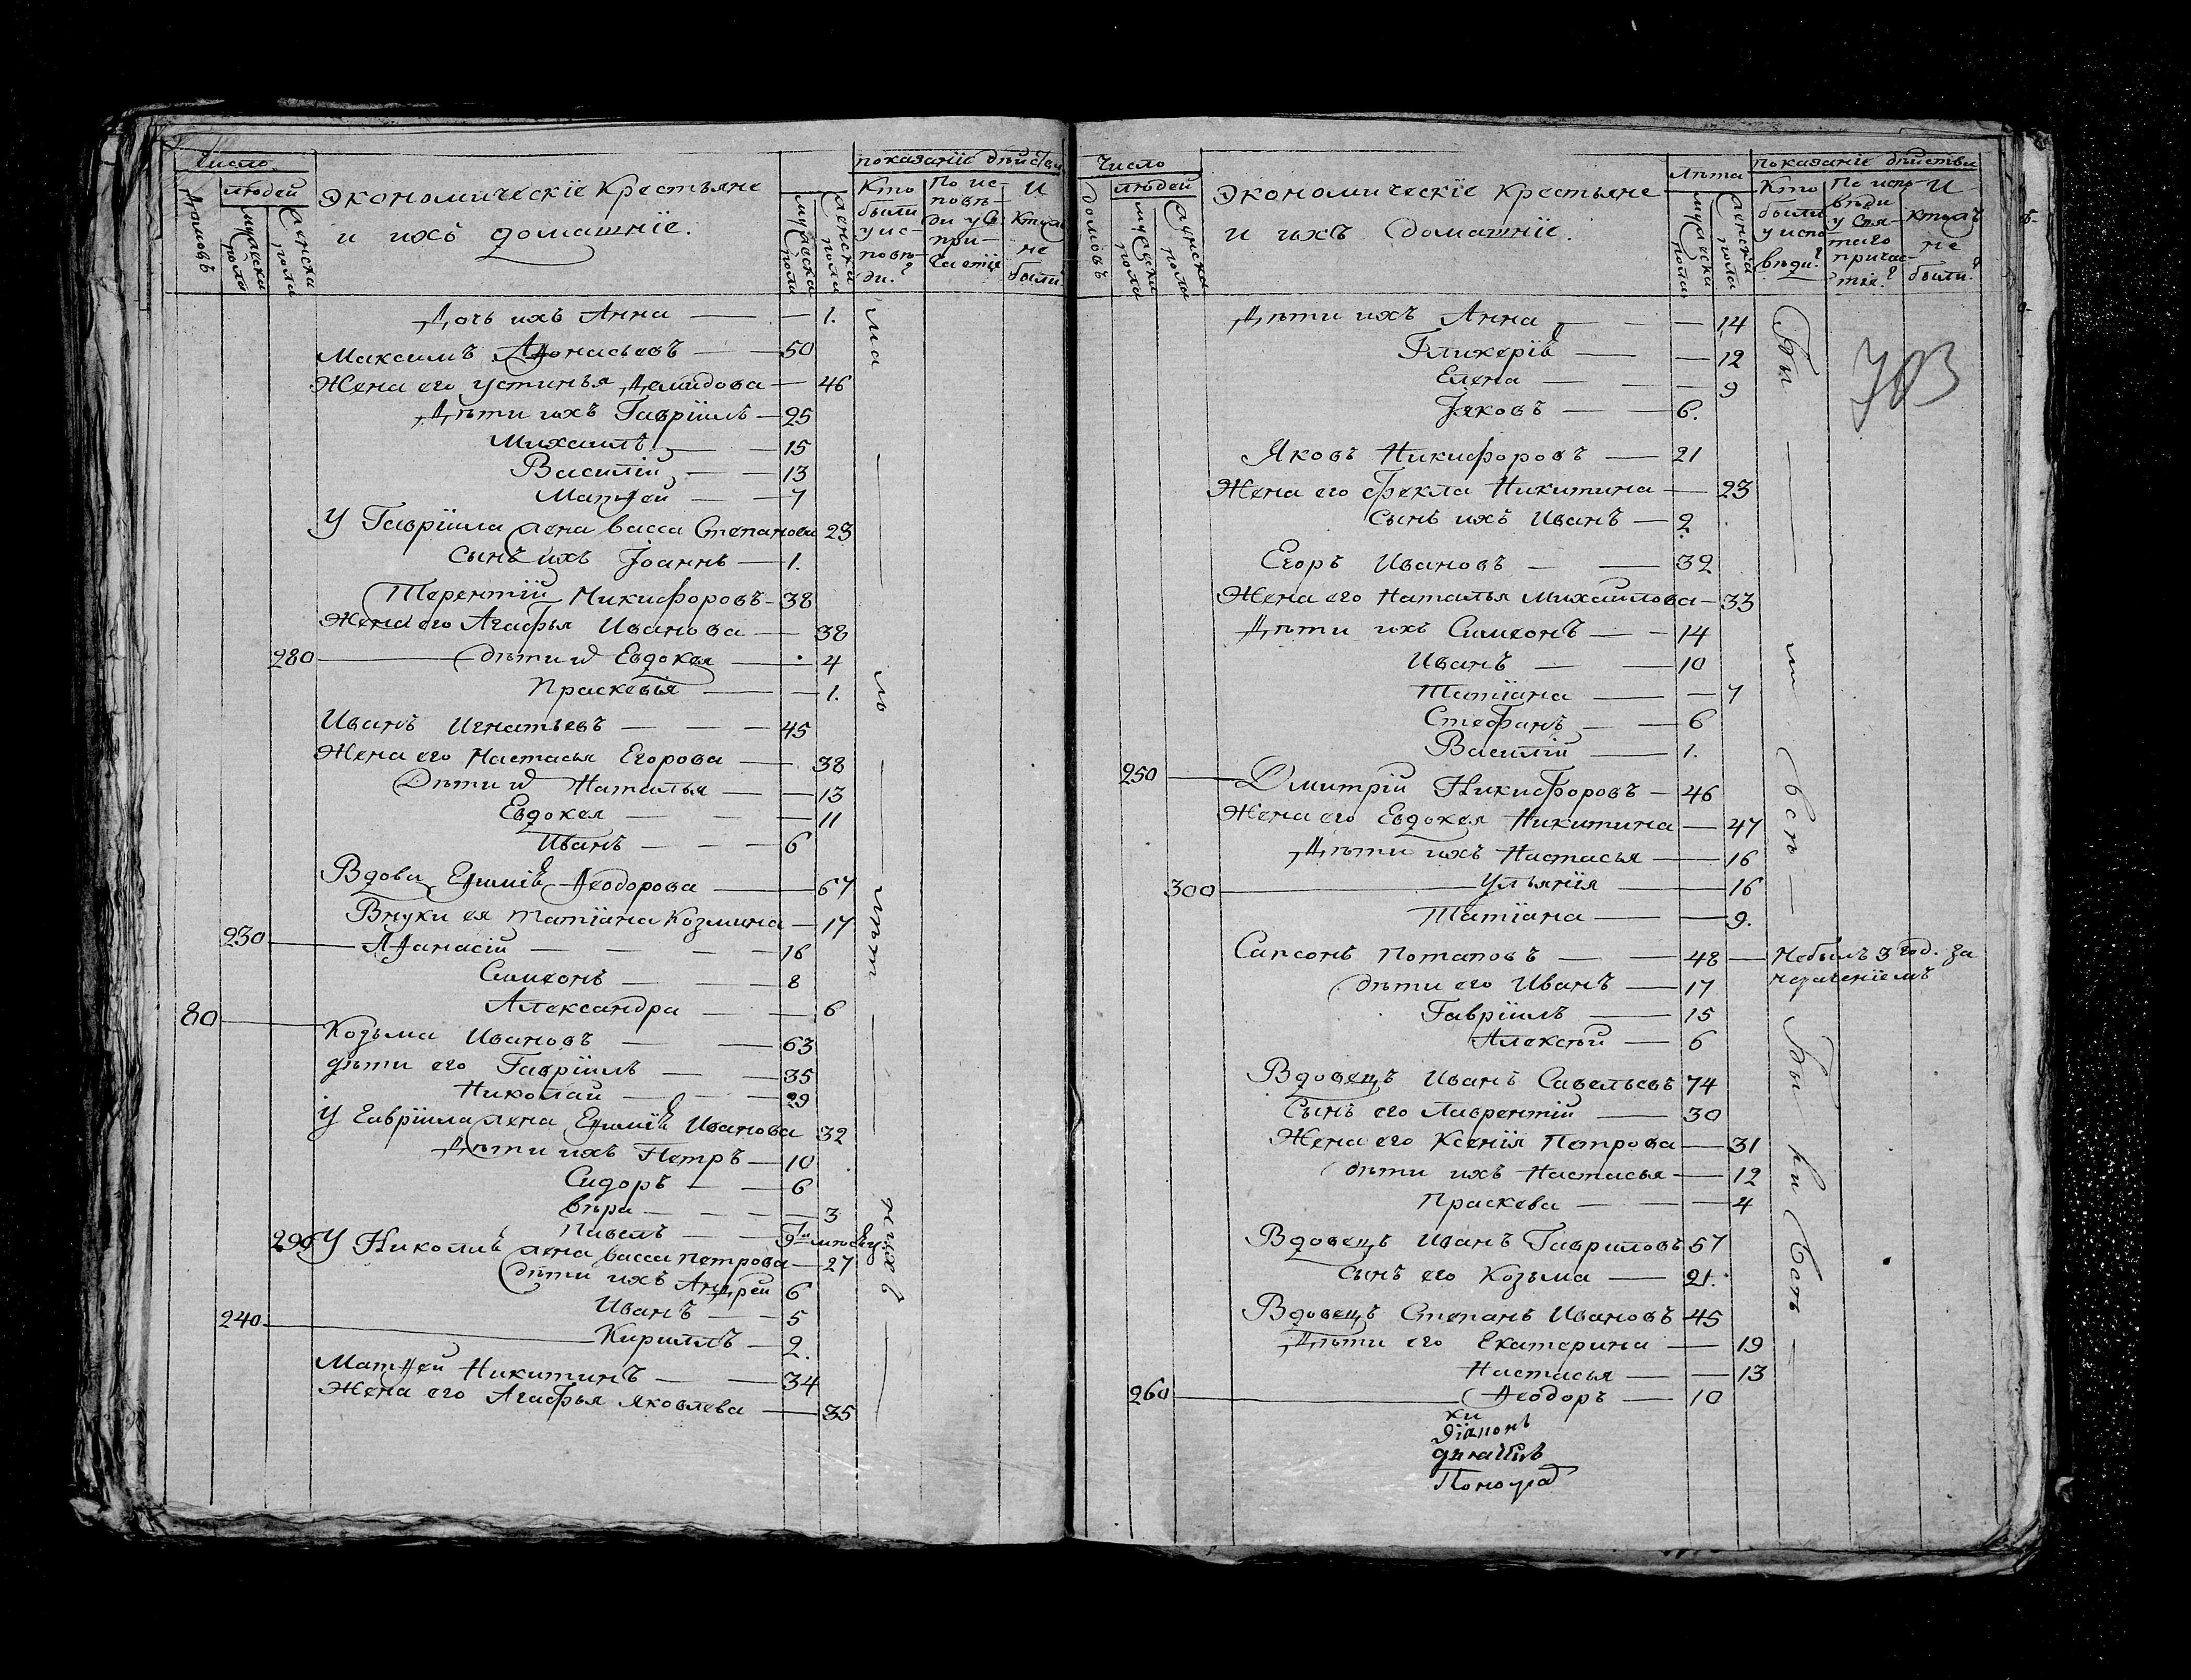 Число
людей
домовъ
мужеска пола
женска пола
Экономическїе Крестьяне
и ихъ домашнїе.
мужеска пола
женска пола
показанїе дѣйства
Кто были у исповѣди?
По исповѣди у Св: причастїя
И кто не были?
Дочь ихъ Анна — — 1.
Максимъ Аѳонасьевъ — — 50
Жена его Устинья Демидова — 46
Дѣти ихъ Гаврїилъ — 25
Михаилъ — — 15
Василїй — — 13
Матѳей — — 7
У Гаврїила жена Васса Степанова 23
Сынъ ихъ Іоаннъ — 1.
Терентїй Никифоровъ — 38
Жена его Агафья Иванова — 38
280 — дѣти их Евдокея — 4
Праскевїя — — 1.
Иванъ Игнатьевъ — — — 45
Жена его Настасья Егорова — 38
Дѣти их Наталья — — 13
Евдокея — — — 11
Иванъ — — — 6
Вдова Еѳимїѣ Ѳеодорова — — 67
Внуки ея Татїана Козмина — 17
230 — Аѳанасїй — — — — 16
Симеонъ — — — 8
Александра — — 6
80 —
Козьма Ивановъ — — 63
дѣти его Гаврїилъ — — 35
Николай — — — 29
У Гаврїила жена Еѳимїѣ Иванова 32
Дѣти ихъ Петръ — 10
Сидоръ — — 6
Вѣра — — — — 3
Павелъ — —
290 У Николиѣ жена Васса Петрова — 27
дѣти ихъ Андрей 6
Иванъ — — 5
240 — Кириллъ — 2.
Матѳей Никитинъ — — 34
Жена его Агафья Яковлева — 35
Число
людей
домовъ
мужеска пола
женска пола
Экономическїе Крестьяне
и ихъ домашнїе.
Лѣта
мужеска пола
женска пола
показанїе дѣйства
Кто были у исповѣди?
По исповѣди у Святаго причастїя?
И кто жъ не были?
703
Дѣти ихъ Анна — — — 14
Гликерїѣ — — 12
Елена — — — 9
Іяковъ — — 6.
Яковъ Никифоровъ — 21
Жена его Фекла Никитина — 23
Сынъ ихъ Иванъ — 2.
Егоръ Ивановъ — — 32
Жена его Наталья Михаилова — 33
Дѣти ихъ Симеонъ — — 14
Иванъ — — 10
Татїана — — 7
Стефанъ — — 6
Василїй — 1.
250 — Дмитрїй Никифоровъ — 46
Жена его Евдокея Никитина — 47
Дѣти ихъ Настасья — 16
300 — Ульянїя — 16
Татїана — — 9.
Сапсонъ Потаповъ — — 48 — Небылъ 3 год. за
нерачениемъ
дѣти его Иванъ — 17
Гаврїилъ — 15
Алексѣй — 6
Вдовецъ Иванъ Савельевъ 74
Сынъ его Лаврентїй — 30
Жена его Ксенїя Петрова — 31
дѣти ихъ Настасья — 12
Праскева — — 4
Вдовецъ Иванъ Гавриловъ 57
сынъ его Козьма — 21.
Вдовецъ Степанъ Ивановъ 45
Дѣти его Екатерина — 19
Настасья — — 13
260 — Ѳеодоръ — 10